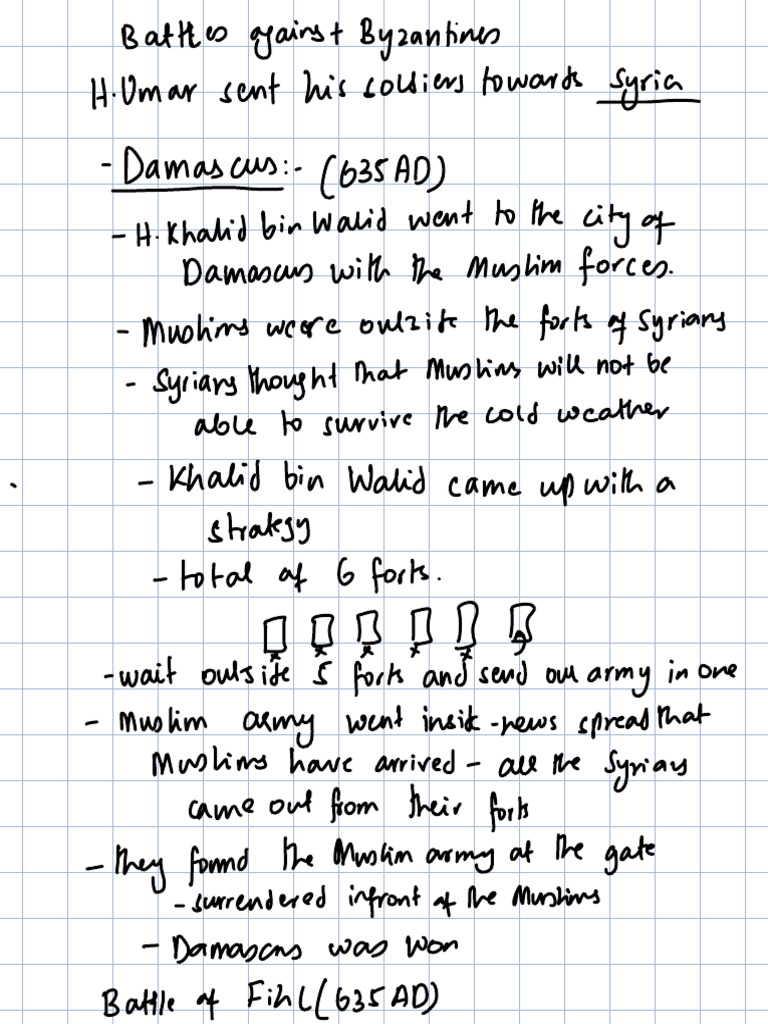 Battles against Byzantines
H.Umar sent his soldiers towards Syria
- Damascus:- (635AD)
- H.Khalid bin Walid went to the city of
Damascus with the Muslim forces.
- Muslims were outside the forts of Syrians
- Syrians thought that Muslims will not be
able to survive the cold weather
- Khalid bin Walid came up with a
strategy
- total of 6 forts.
- wait outside 5 forts and send our army in one
- Muslim army went inside - news spread that
Muslims have arrived - all the Syrians
came out from their forts
- they found the Muslim army at the gate
- surrendered infront of the Muslims
- Damascus was won
Battle of Fihl (635AD)